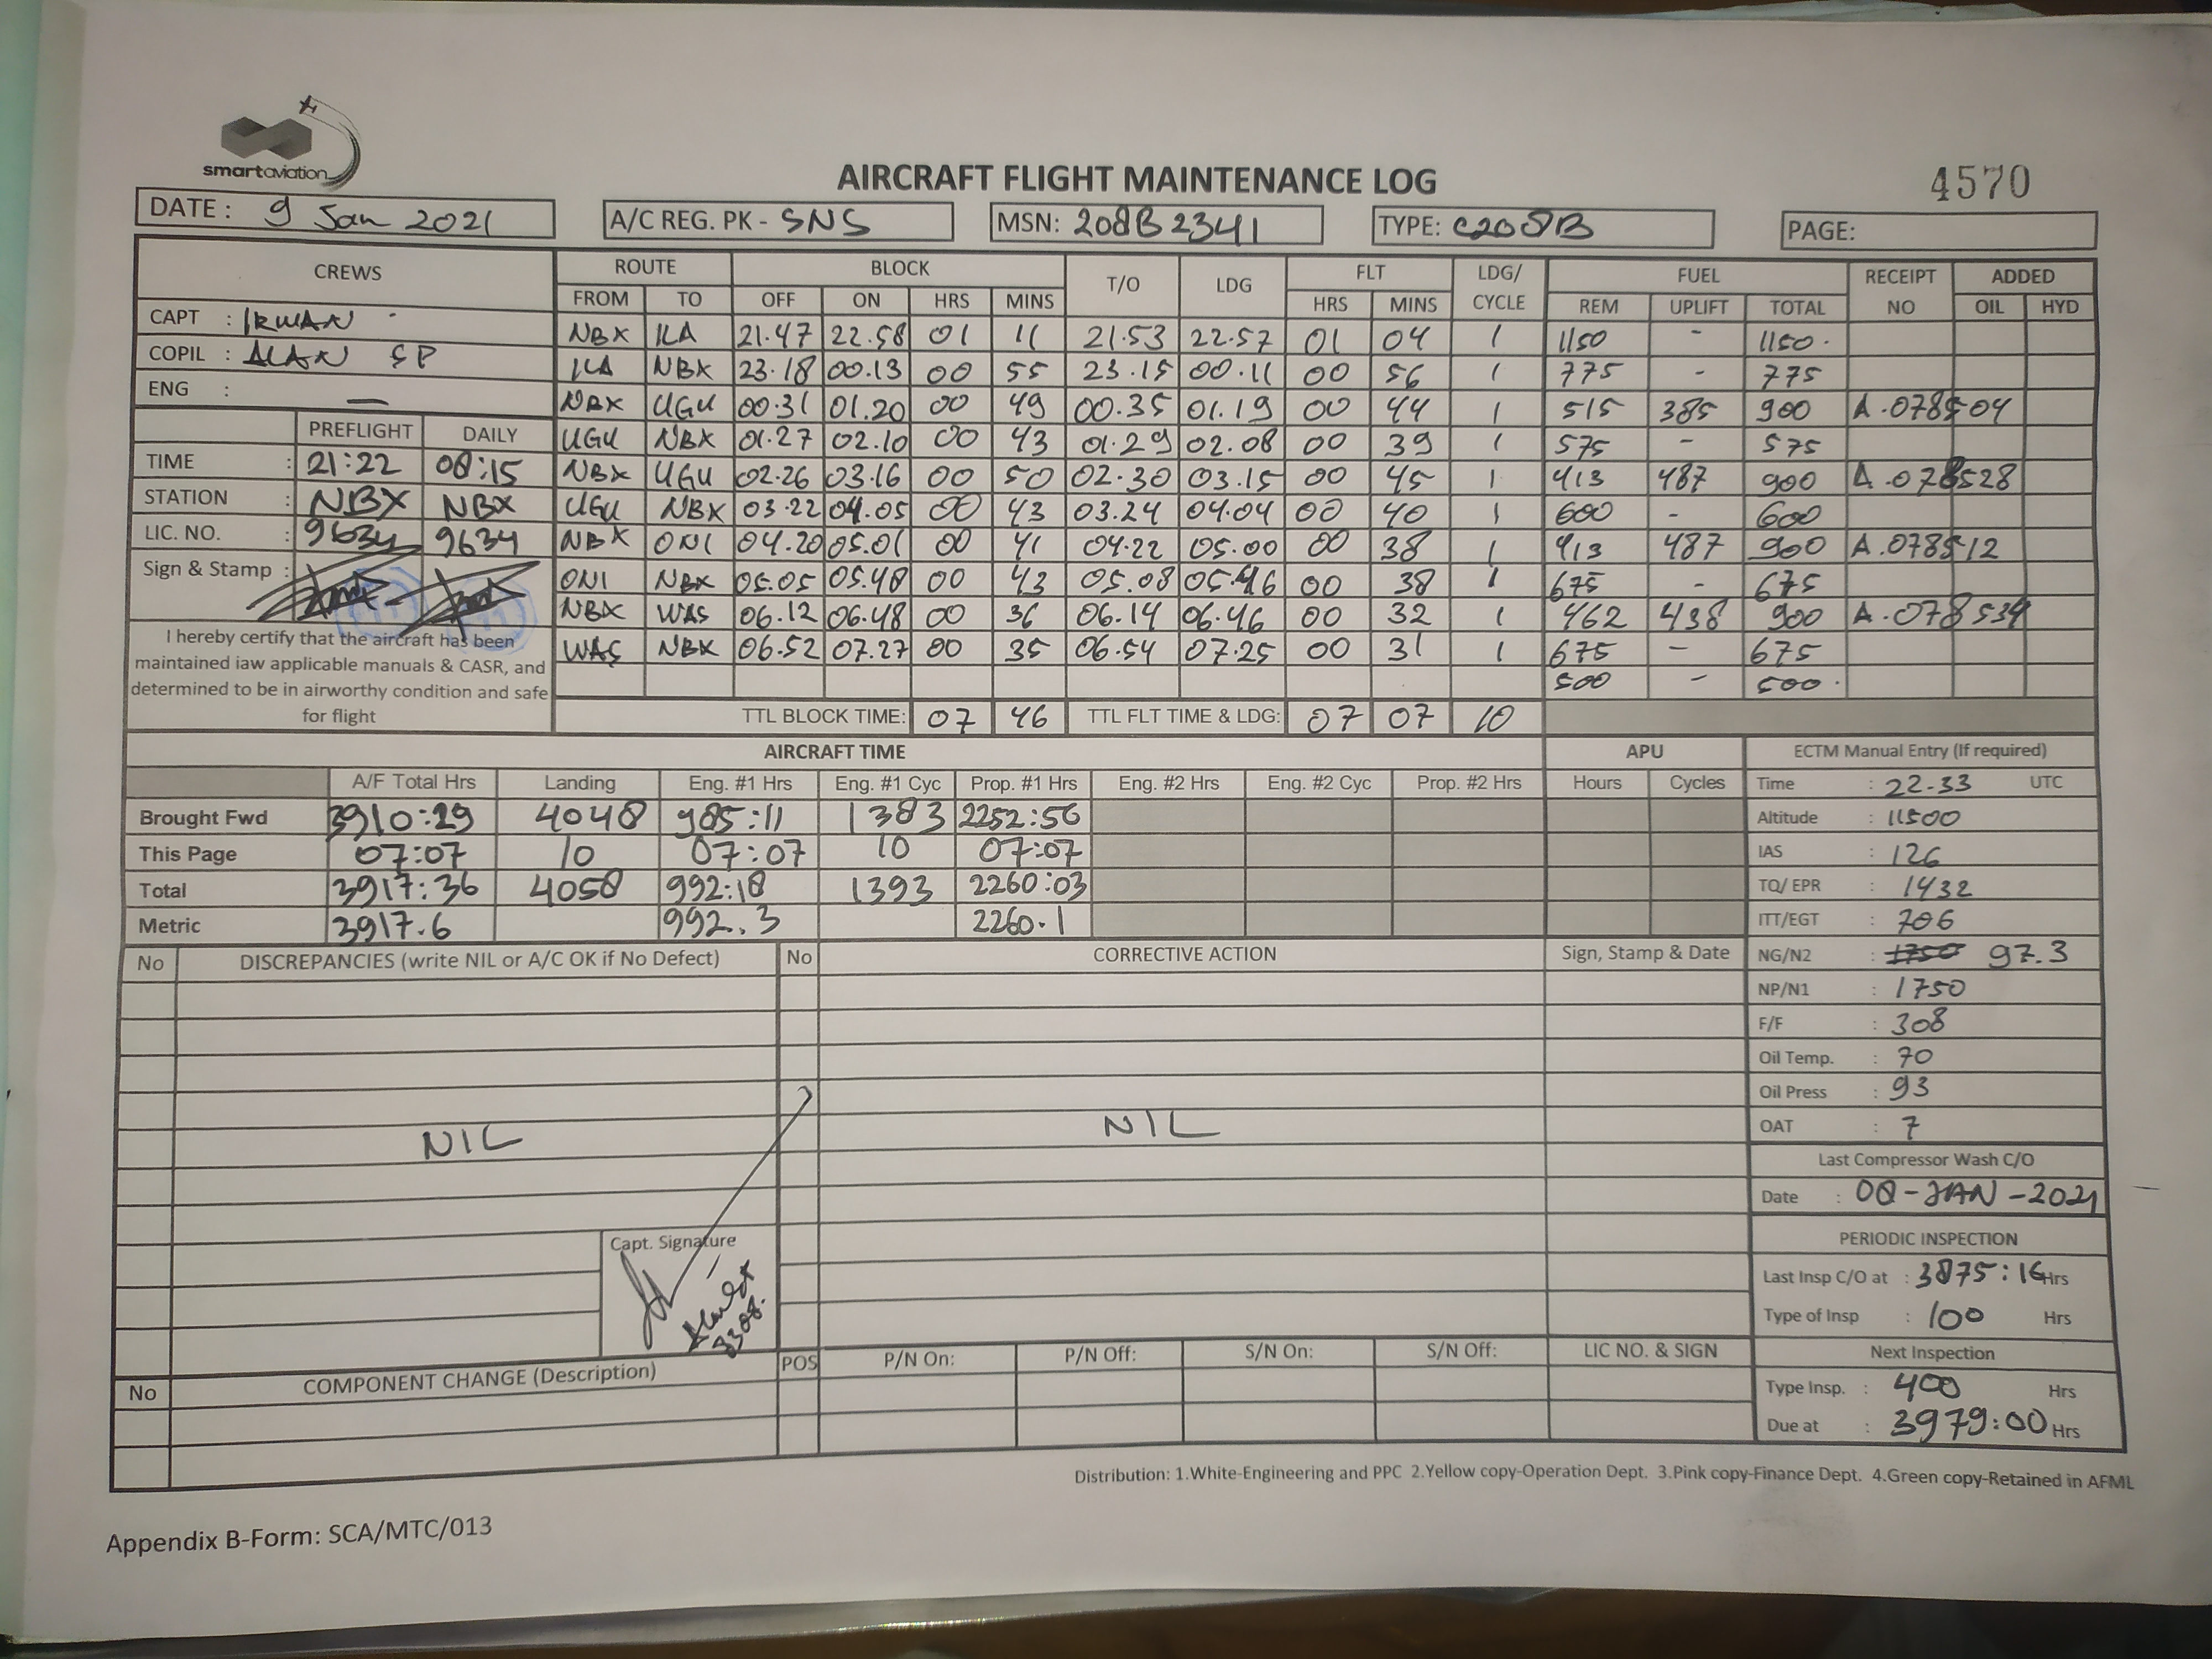 smartaviation
AIRCRAFT FLIGHT MAINTENANCE LOG
4570
DATE : 9 Jan 2021
A/C REG. PK - SNS
MSN: 208B2341
TYPE: C208B
PAGE:
CREWS
CAPT : IRWAN
COPIL : ALAN SP
ENG : —
PREFLIGHT DAILY
TIME : 21:22 08:15
STATION : NBX NBX
LIC. NO. : 9634 9634
Sign & Stamp :
I hereby certify that the aircraft has been
maintained iaw applicable manuals & CASR, and
determined to be in airworthy condition and safe
for flight
ROUTE BLOCK T/O LDG FLT LDG/ CYCLE FUEL RECEIPT NO ADDED
FROM TO OFF ON HRS MINS HRS MINS REM UPLIFT TOTAL OIL HYD
NBX ILA 21.47 22.58 01 11 21.53 22.57 01 04 1 1150 - 1150.
ILA NBX 23.18 00.13 00 55 23.15 00.11 00 56 1 775 - 775
NBX UGU 00.31 01.20 00 49 00.35 01.19 00 44 1 515 385 900 A.078504
UGU NBX 01.27 02.10 00 43 01.29 02.08 00 39 1 575 - 575
NBX UGU 02.26 03.16 00 50 02.30 03.15 00 45 1 413 487 900 A.078528
UGU NBX 03.22 04.05 00 43 03.24 04.04 00 40 1 600 - 600
NBX ONI 04.20 05.01 00 41 04.22 05.00 00 38 1 413 487 900 A.078512
ONI NBX 05.05 05.48 00 43 05.08 05.46 00 38 1 675 - 675
NBX WAS 06.12 06.48 00 36 06.14 06.46 00 32 1 462 438 900 A.078534
WAS NBX 06.52 07.27 00 35 06.54 07.25 00 31 1 675 - 675
500 - 500.
TTL BLOCK TIME: 07 46 TTL FLT TIME & LDG: 07 07 10
AIRCRAFT TIME
A/F Total Hrs Landing Eng. #1 Hrs Eng. #1 Cyc Prop. #1 Hrs Eng. #2 Hrs Eng. #2 Cyc Prop. #2 Hrs
Brought Fwd 3910:29 4048 985:11 1383 2252:56
This Page 07:07 10 07:07 10 07:07
Total 3917:36 4058 992:18 1393 2260:03
Metric 3917.6 992.3 2260.1
APU
Hours Cycles
ECTM Manual Entry (If required)
Time : 22.33 UTC
Altitude : 11500
IAS : 126
TQ/ EPR : 1432
ITT/EGT : 706
NG/N2 : 1750 97.3
NP/N1 : 1750
F/F : 308
Oil Temp. : 70
Oil Press : 93
OAT : 7
Last Compressor Wash C/O
Date : 08-JAN-2021
PERIODIC INSPECTION
Last Insp C/O at : 3875:16 Hrs
Type of Insp : 100 Hrs
Next Inspection
Type Insp. : 400 Hrs
Due at : 3979:00 Hrs
No DISCREPANCIES (write NIL or A/C OK if No Defect) No CORRECTIVE ACTION Sign, Stamp & Date
NIL NIL
Capt. Signature
No COMPONENT CHANGE (Description) POS P/N On: P/N Off: S/N On: S/N Off: LIC NO. & SIGN
Distribution: 1.White-Engineering and PPC 2.Yellow copy-Operation Dept. 3.Pink copy-Finance Dept. 4.Green copy-Retained in AFML
Appendix B-Form: SCA/MTC/013